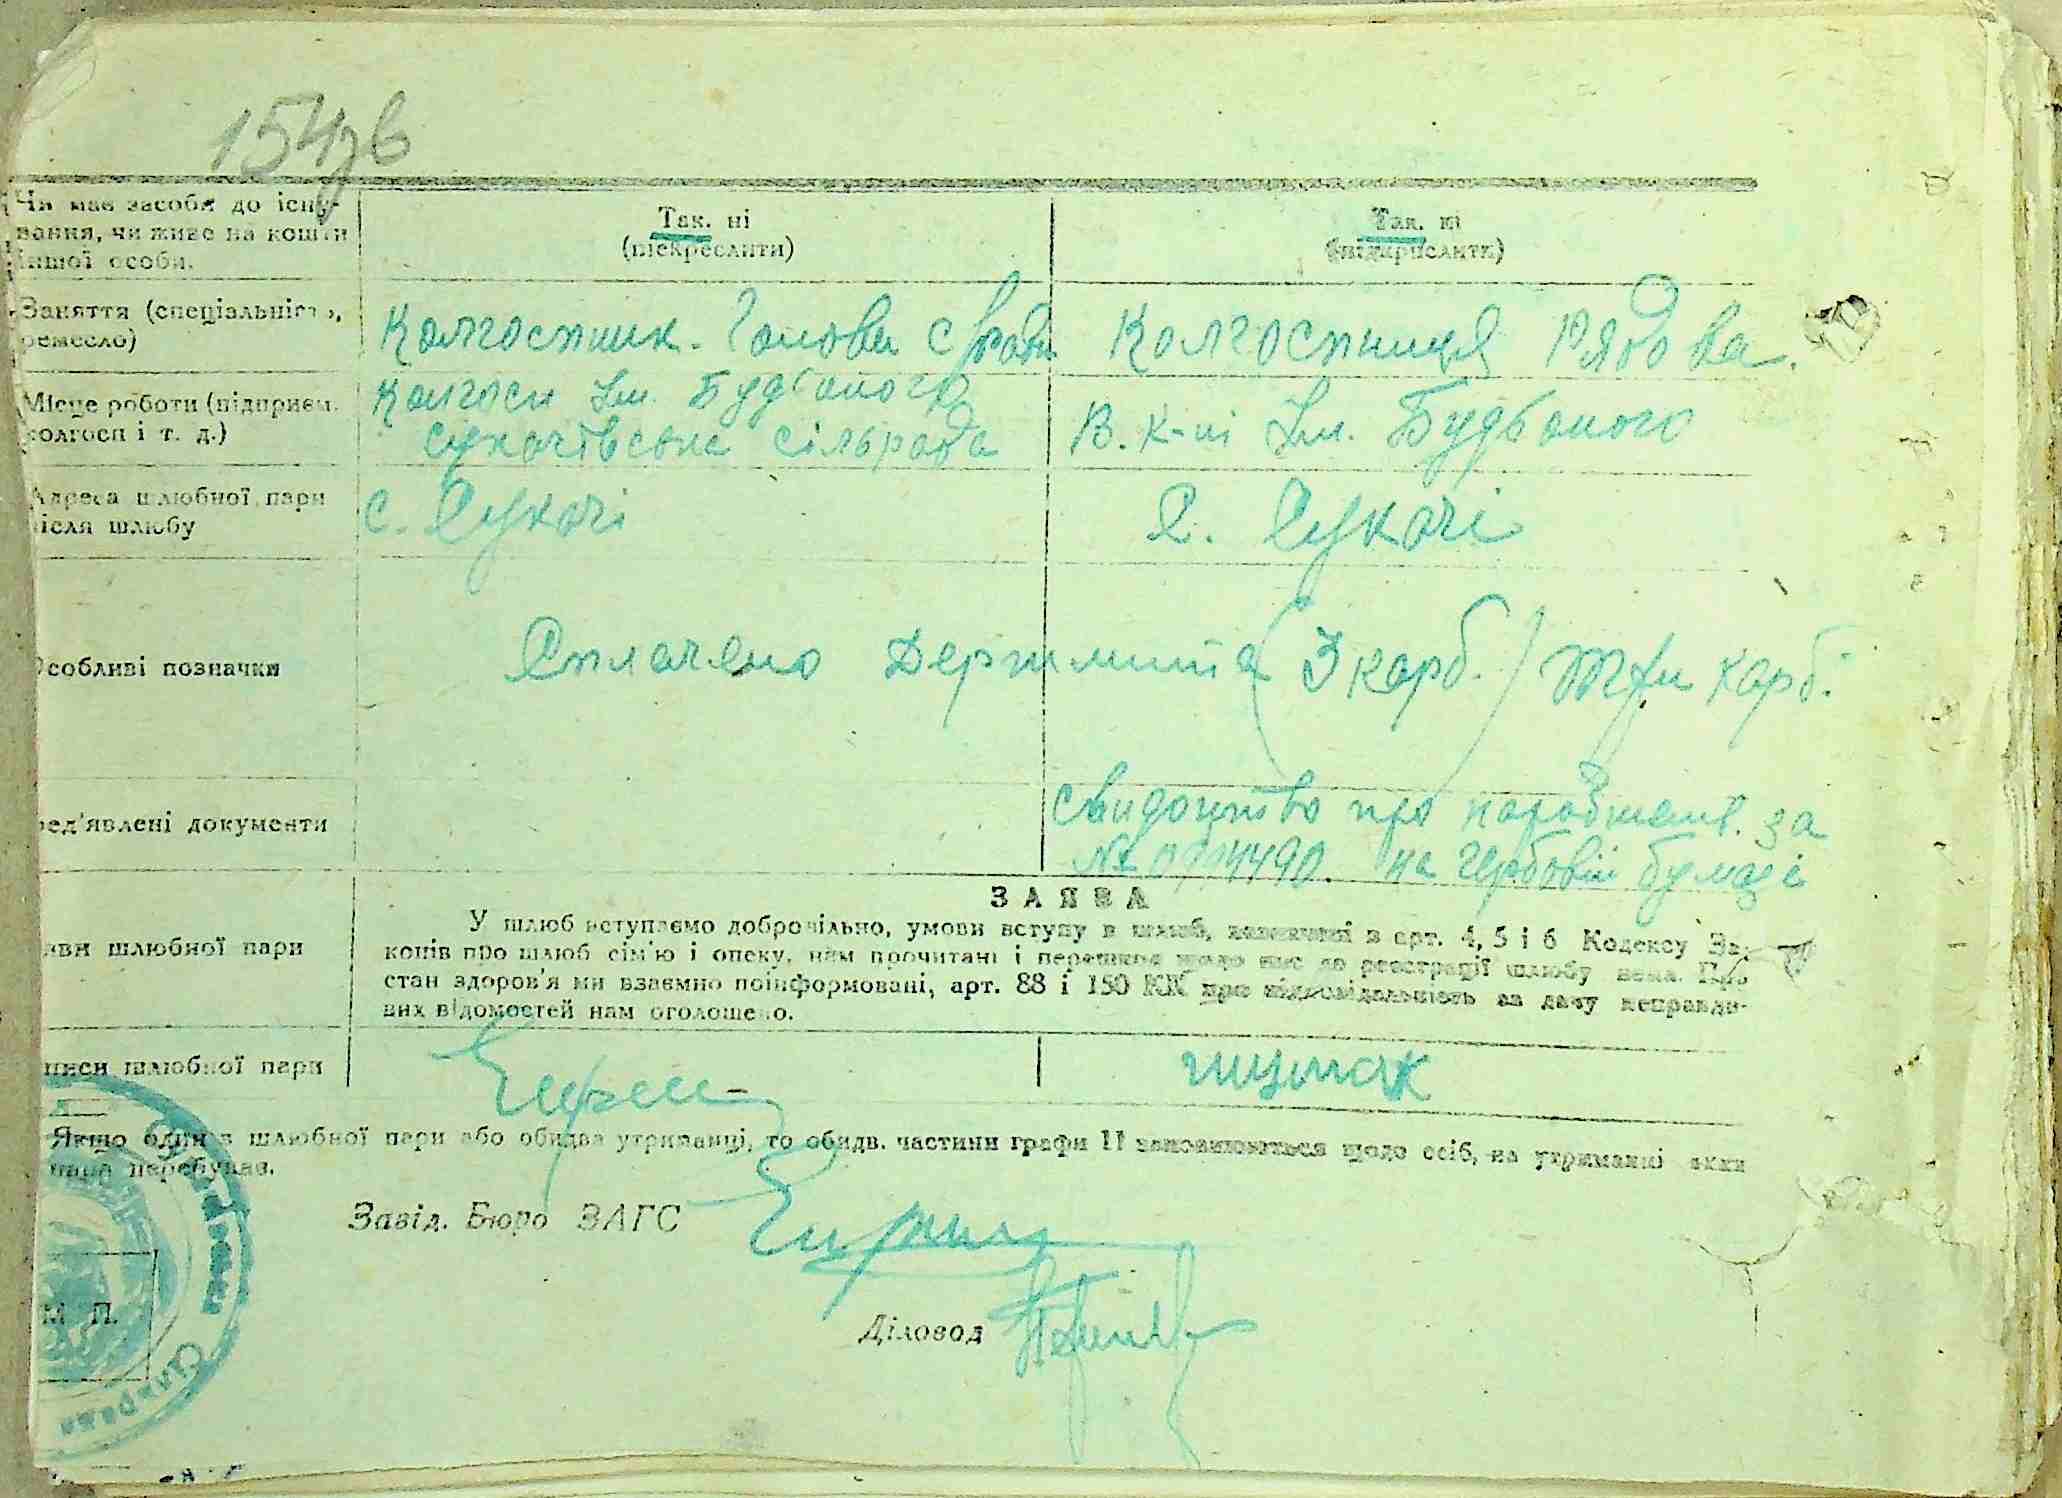 154зв
Чи має засоби до існу- Так. ні Так. ні
вання, чи живе на кошти (підкреслити) (підкреслити)
іншої особи.
Заняття (спеціальність, Колгоспник. Голова с/ради Колгоспниця Рядова.
ремесло)
Місце роботи (підприєм. Колгосп Ім. Будьоного В. к-пі Ім. Будьоного
колгосп і т. д.) Сукачівська сільрада
Адреса шлюбної пари с. Сукачі С. Сукачі
після шлюбу
Особливі позначки Сплачено Держмита (3 карб.) три карб.
ред'явлені документи Свидоцтво про народження за
№ на гербовій бумазі
ЗАЯВА
У шлюб вступаємо добровільно, умови вступу в шлюб, зазначені в арт. 4, 5 і 6 Кодексу За-
яви шлюбної пари конів про шлюб сім'ю і опеку, нам прочитані і перешкод щодо нас до реєстрації шлюбу нема. Про
стан здоров'я ми взаємно поінформовані, арт. 88 і 150 КК про відповідальність за дачу неправди-
вих відомостей нам оголошено.
писи шлюбної пари
Якщо один з шлюбної пари або обидва утриманці, то обидв. частини графи 11 заповнюються щодо осіб, на утриманні яких
пара перебуває.
Завід. Бюро ЗАГС
М. П.
Діловод